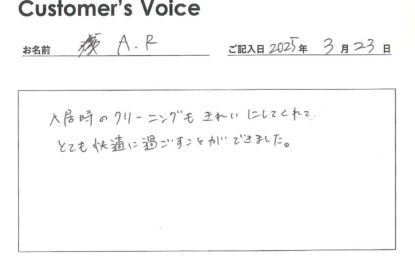 Customer's Voice
お名前 A.R ご記入日 2025年 3月 23日
入居時のクリーニングもきれいにしてくれて、
とても快適に過ごすことができました。